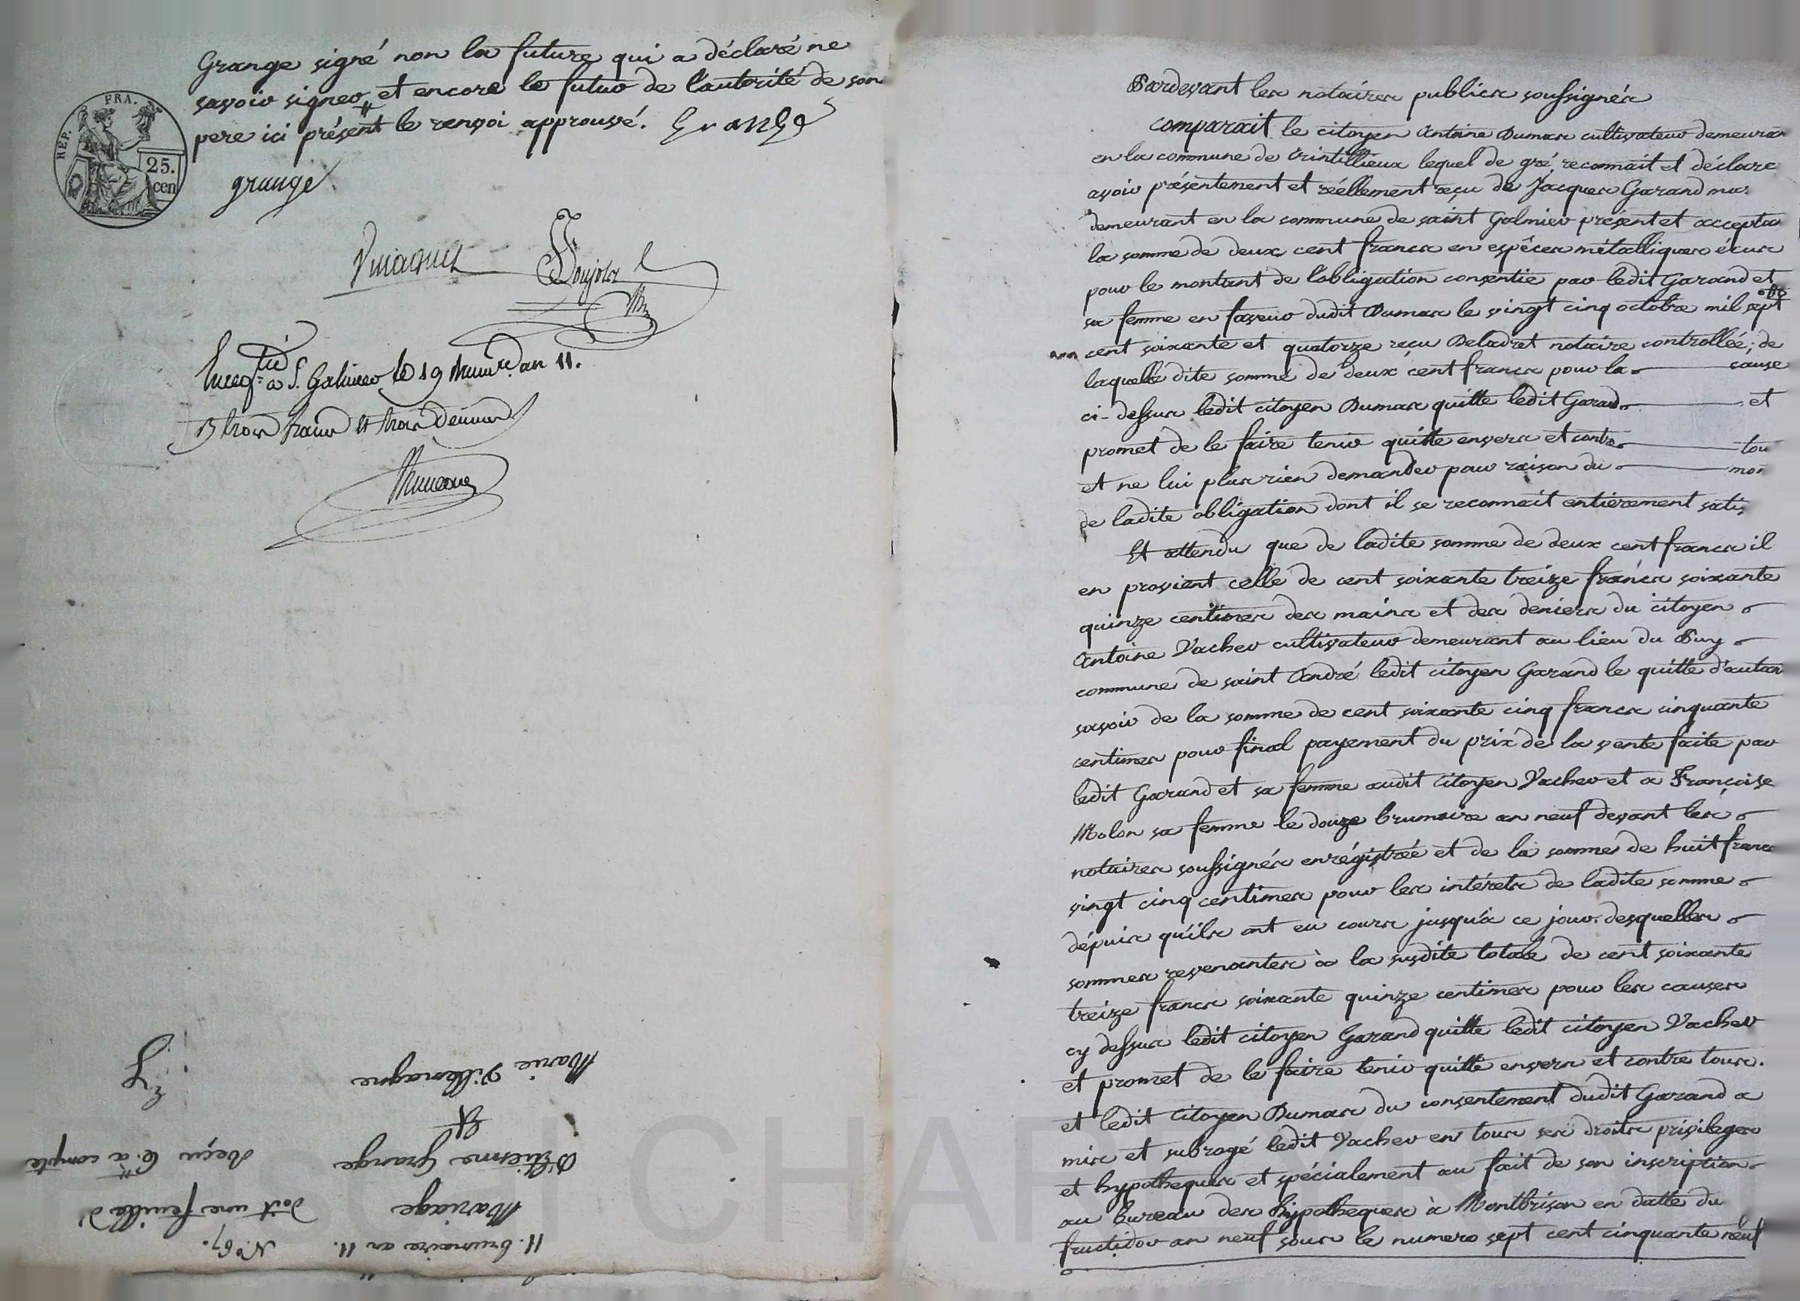 Grange signé non la future qui a déclaré ne
savoir signer et encore le futur de l'autorité de son
pere ici présent le renvoi approuvé. Grange
REP. FRA.
25.
cen
grange
Enregtré à St. Galmier le 19 brumre an 11.
trois francs et trois décimes
Pardevant les notaires publics soussignés
Comparait le citoyen Antoine Dumas cultivateur demeuran
en la commune de Trintillieux lequel de gré reconnait et déclare
avoir présentement et réellement reçu de Jacques Garand
demeurant en la commune de saint Galmier présent et acceptan
la somme de deux cent francs en espéces métalliques écus
pour le montant de l'obligation consentie par ledit Garand et
sa femme en faveur dudit Dumas le vingt cinq octobre mil sept
cent soixante et quatorze reçu Deladret notaire controllée; de
laquelle dite somme de deux cent francs pour la cause
ci-dessus ledit citoyen Dumas quitte ledit Garand et
promet de le faire tenir quitte envers et contre tou
et ne lui plus rien demander pour raison du mon
de ladite obligation dont il se reconnait entièrement satis
Et attendu que de ladite somme de deux cent francs il
en provient celle de cent soixante treize francs soixante
quinze centimes des mains et des deniers du citoyen
Antoine Vacher cultivateur demeurant au lieu du Puy
commune de saint André ledit citoyen Garand le quitte d'autan
savoir de la somme de cent soixante cinq francs cinquante
centimes pour final payement du prix de la vente faite par
ledit Garand et sa femme audit citoyen Vacher et a Françoise
Molon sa femme le douze brumaire an neuf devant les
notaires soussignés enrégistrée et de la somme de huit francs
vingt cinq centimes pour les intérets de ladite somme
dépuis qu'ils ont eu cours jusqu'à ce jour. desquelles
sommes revenantes à la susdite totale de cent soixante
treize francs soixante quinze centimes pour les causes
cy dessus ledit citoyen Garand quitte ledit citoyen Vacher
et promet de le faire tenir quitte envers et contre tous.
et ledit citoyen Dumas du consentement dudit Garand a
mis et subrogé ledit Vacher en tous ses droits privileges
et hypotheques et spécialement au fait de son inscription
au bureau des hypotheques à Montbrison en datte du
fructidor an neuf sous le numero sept cent cinquante neuf
11. brumaire an 11. N° 67.
Mariage doit une feuille d'
D'Etienne Grange Reçu 6.tt a compte
Et
Marie Villemagne